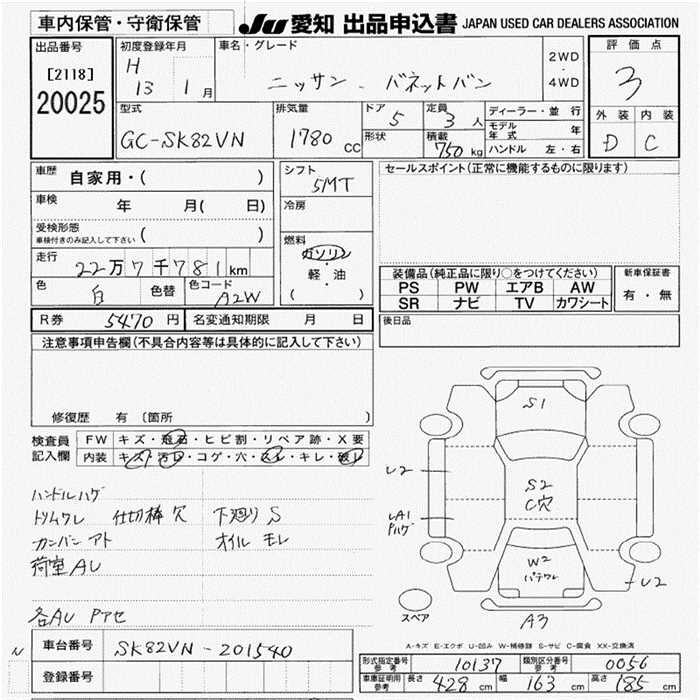 車内保管・守衛保管
JU 愛知 出品申込書 JAPAN USED CAR DEALERS ASSOCIATION
出品番号
[2118]
20025
初度登録年月
H
13 1 月
車名・グレード
ニッサン バネットバン
2WD
・
4WD
評価点
3
外装 内装
D C
型式
GC-SK82VN
排気量
1780 cc
ドア 5
形状
定員 3 人
積載 750 kg
ディーラー・並行
モデル年式 年
ハンドル 左・右
車歴 自家用・( )
車検 年 月( 日)
受検形態
車検付きのみ記入して下さい ( )
走行 22万7千781km
色 白 色替 色コード A2W
シフト
5MT
冷房
燃料
ガソリン
・
軽・油
( )
セールスポイント(正常に機能するものに限ります)
装備品(純正品に限り○をつけてください)
PS PW エアB AW
SR ナビ TV カワシート
新車保証書
有・無
R券 5470 円 名変通知期限 月 日
後日品
注意事項申告欄(不具合内容等は具体的に記入して下さい)
修復歴 有 〔箇所
検査員記入欄
FW キズ・飛石・ヒビ割・リペア跡・X要
内装 キズ・汚レ・コゲ・穴・スレ・キレ・破レ
ハンドルハゲ
トリムワレ 仕切棒穴 下廻りS
カンバンアト オイルモレ
荷室AU
各AU Pアセ
S1
U2
S2
C穴
LA1
Pハゲ
W2
パテワレ
U2
スペア
A3
A-キズ E-エクボ U-凹み W-補修跡 S-サビ C-腐食 XX-交換済
N
車台番号 SK82VN-201540
登録番号
形式指定番号 参考 10137 類別区分番号 参考 0056
車庫証明用 参考 長さ 428 cm 幅 163 cm 高さ 185 cm